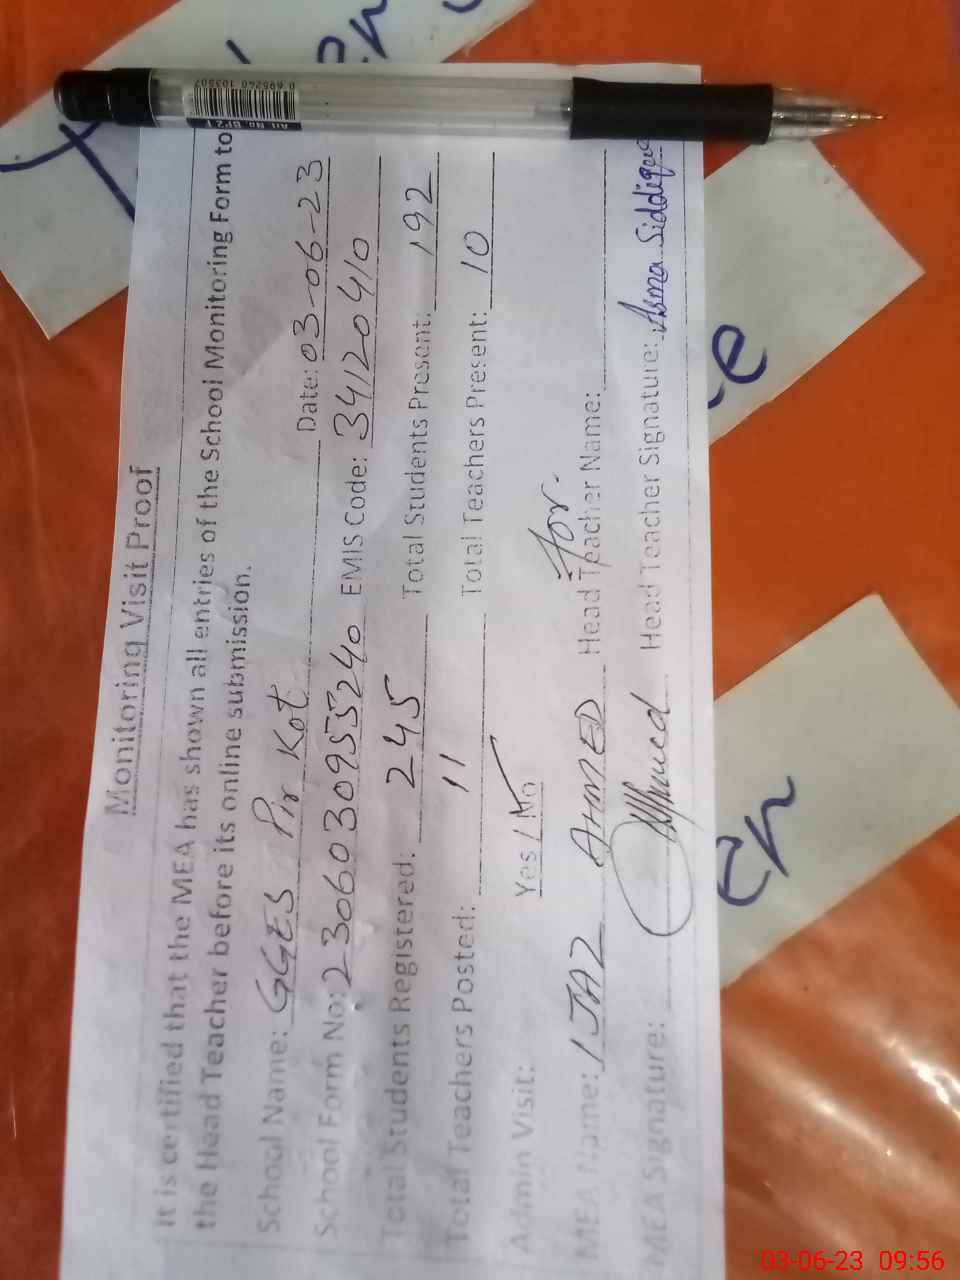 Monitoring Visit Proof
It is certified that the MEA has shown all entries of the School Monitoring Form to
the Head Teacher before its online submission.
School Name: GGES Pir Kot Date: 03-06-23
School Form No: 230603095324o EMIS Code: 34120410
Total Students Registered: 245 Total Students Present: 192
Total Teachers Posted: 11 Total Teachers Present: 10
Admin Visit: Yes / No
for.
MEA Name: IJAZ AHMED Head Teacher Name:
MEA Signature: Ahmed Head Teacher Signature: Asma Siddique
0 695240 103507
Art No. BP21
en
e
en
03-06-23 09:56